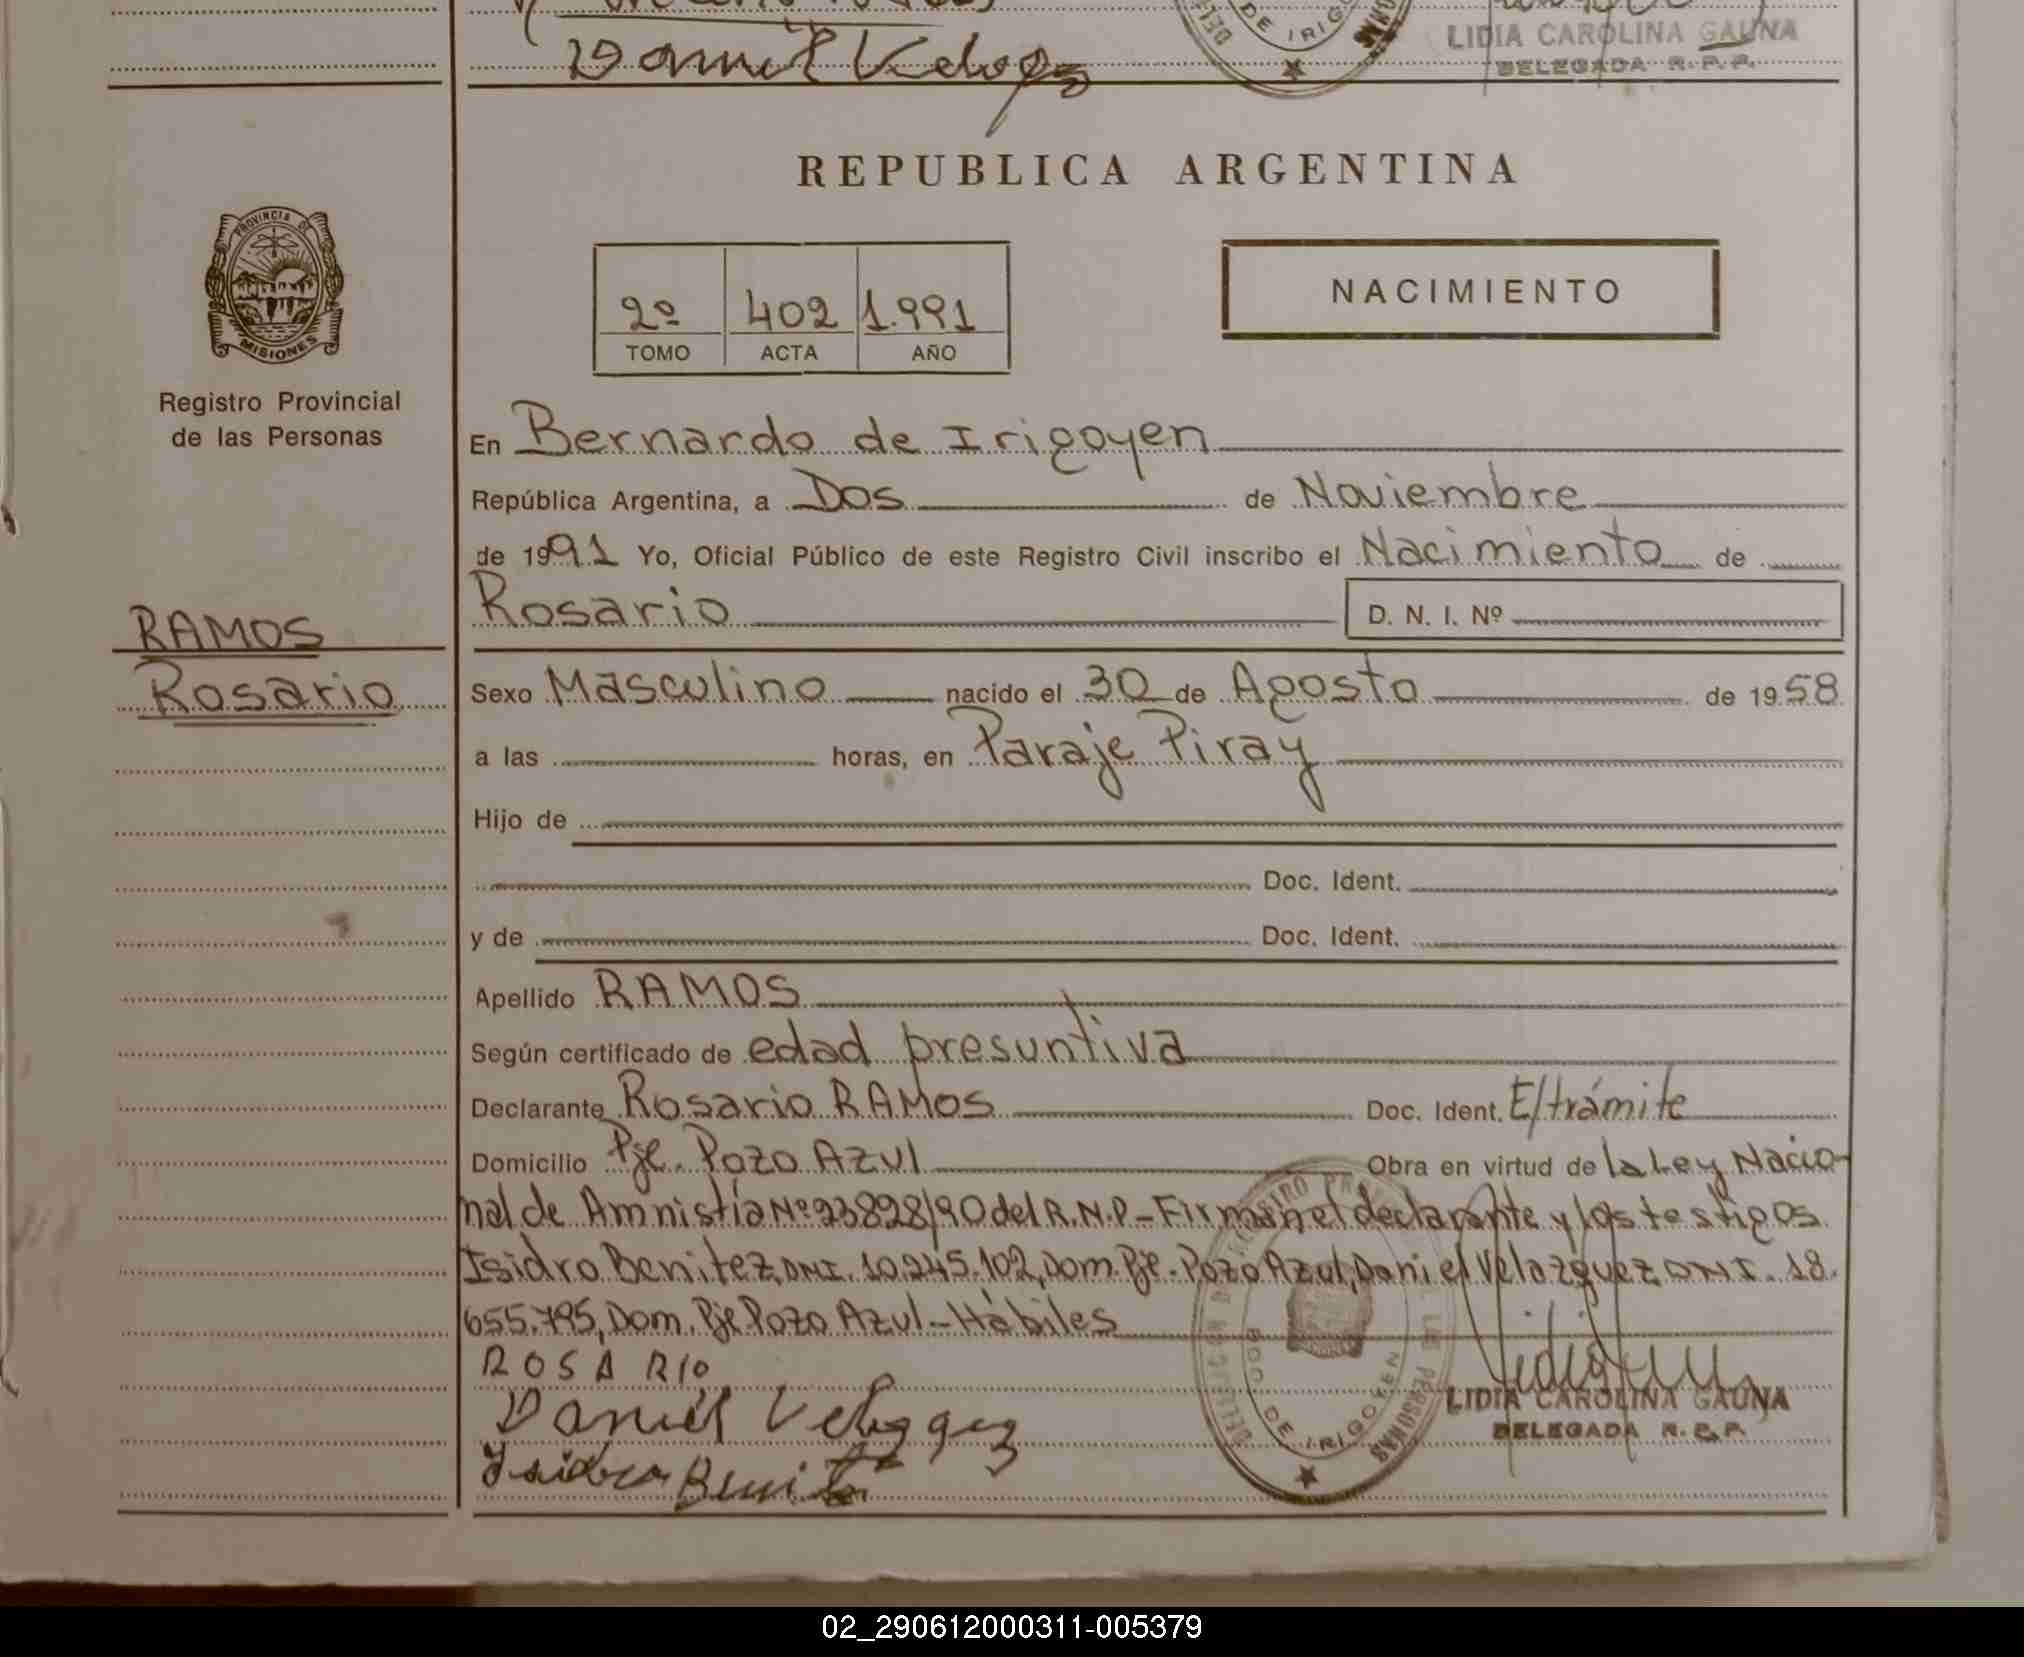 Daniel Velozqz
DE IRIGO
LIDIA CAROLINA GAUNA
DELEGADA R.P.P.
REPUBLICA ARGENTINA
PROVINCIA DE
MISIONES
2º 402 1.991
TOMO ACTA AÑO
NACIMIENTO
Registro Provincial
de las Personas
En Bernardo de Irigoyen
República Argentina, a Dos de Noviembre
de 1991 Yo, Oficial Público de este Registro Civil inscribo el Nacimiento de
Rosario D. N. I. Nº
RAMOS
Rosario
Sexo Masculino nacido el 30 de Agosto de 1958
a las horas, en Paraje Piray
Hijo de
Doc. Ident.
y de Doc. Ident.
Apellido RAMOS
Según certificado de edad presuntiva
Declarante Rosario RAMOS Doc. Ident. E/trámite
Domicilio Pje. Pozo Azul Obra en virtud de la Ley Nacio-
nal de Amnistía Nº 23828/90 del R.N.P.- Firman el declarante y los testigos
Isidro Benitez, DNI. 10.245.102, Dom. Pje. Pozo Azul, Daniel Velazquez DNI. 18.
655.795, Dom. Pje Pozo Azul - Hábiles
ROSARIO
Daniel Velozqez
Isidro Benitez
DELEGACION DE REGISTRO PROVINCIAL DE LAS PERSONAS
BDO. DE IRIGOYEN
LIDIA CAROLINA GAUNA
DELEGADA R.P.P.
02_290612000311-005379